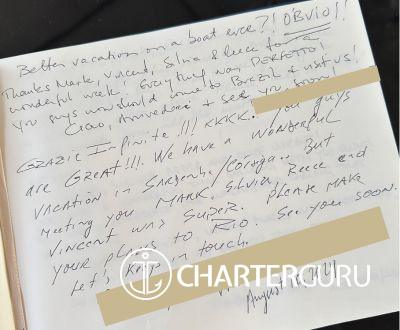 Better vacation on a boat ever?! ÓBVIO!!
Thanks Mark, Vincent, Silvia & Reece for a
wonderful week. Everything was PERFETTO!
You guys should come to Brazil & visit us!
Ciao, Arrivederci & see you soon!
GRAZIE Infinite!!! KKKK. You guys
are GREAT!!!. We have a WONDERFUL
vacation in Sardenha/Córsega.. But
meeting you MARK, Silvia, Reece and
Vincent was SUPER. Please make
your plans to RIO. See you soon.
Let's keep in touch.
CHARTERGURU
August